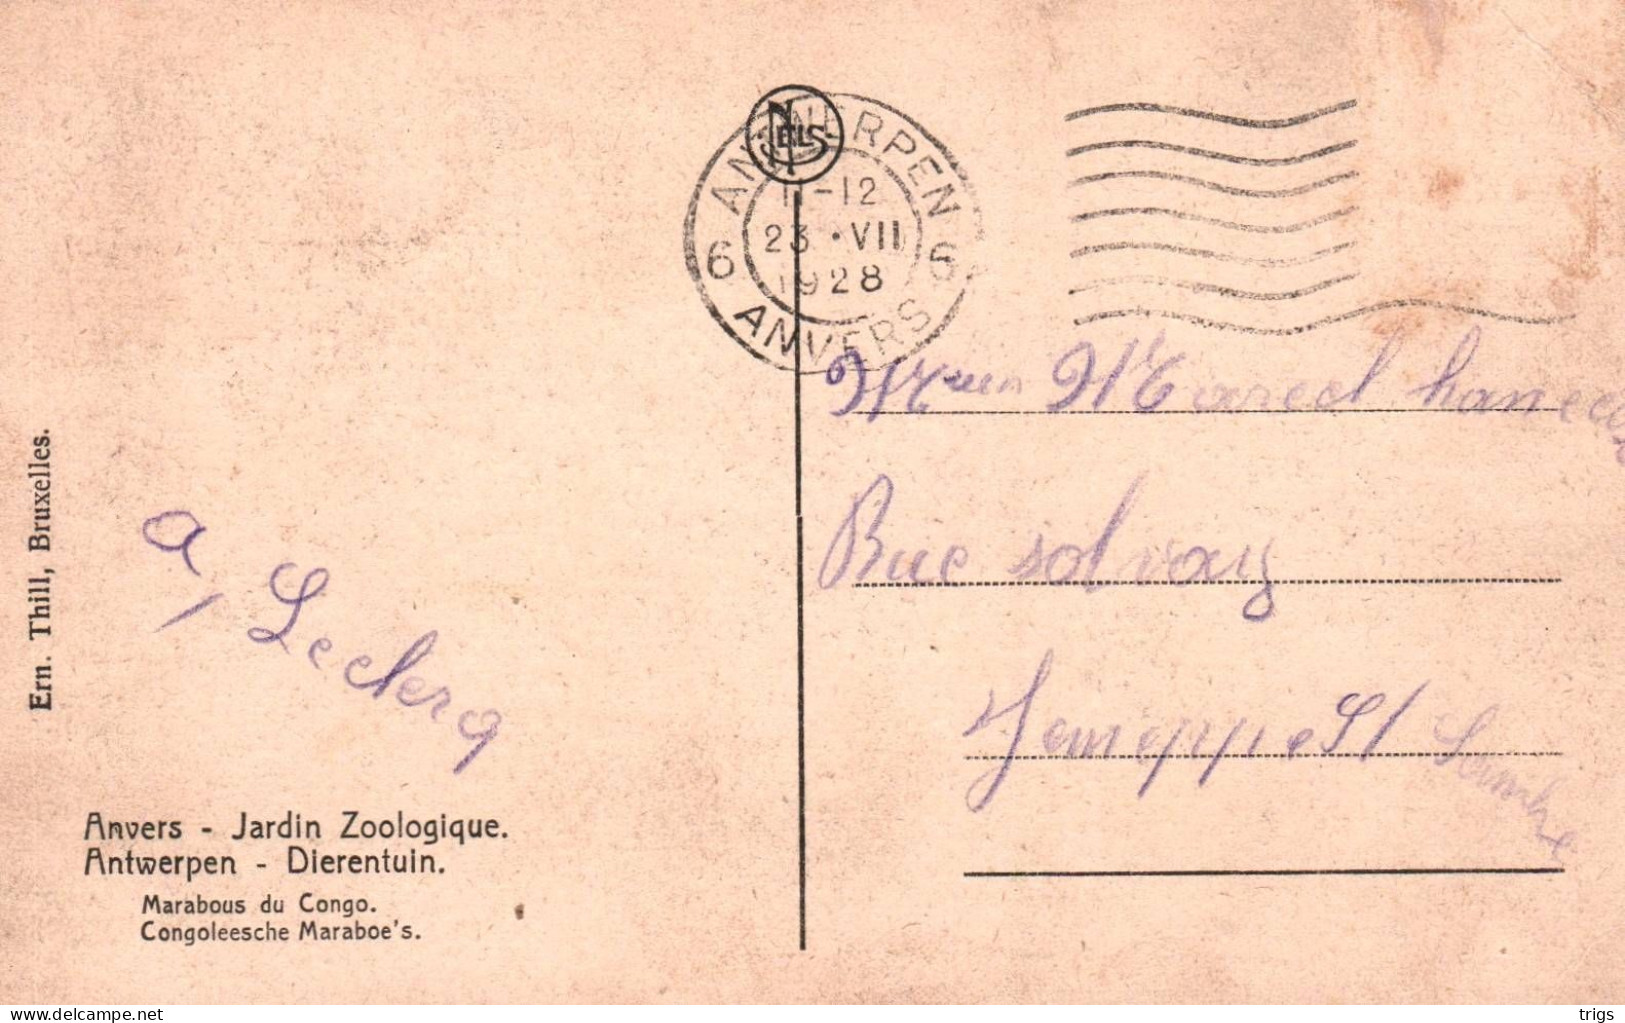 NELS
ANTWERPEN
11-12
6 23 · VII 6
1928
ANVERS
Marcel
Rue solvay
Jemeppe S/ Sambre
a, Leclerq
Ern. Thill, Bruxelles.
Anvers - Jardin Zoologique.
Antwerpen - Dierentuin.
Marabous du Congo.
Congoleesche Maraboe's.
delcampe.net
trigs